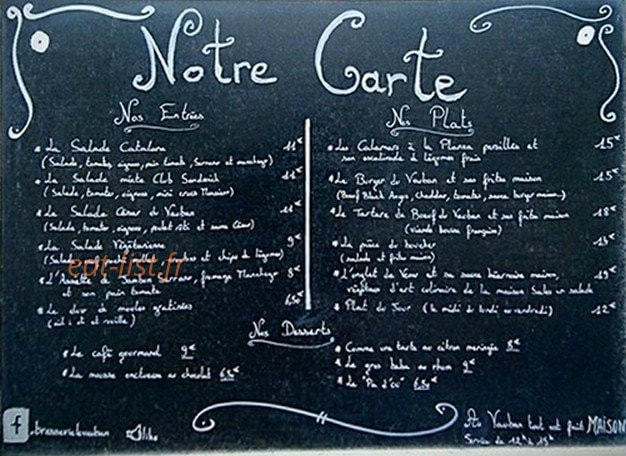 Notre Carte
Nos Entrées
La Salade Catalane 11€
(Salade, tomates, oignons, pain tomate, Serrano et manchego)
La Salade mixte Club Sandwich 11€
(Salade, tomates, oignons, mini croc Monsieur)
La Salade César du Vauban 11€
(Salade, tomates, oignons, poulet rôti et sauce César)
La Salade Végétarienne 9€
(Salade et chips de légumes)
L'Assiette de Jambon Serrano, fromage Manchego 8€
et son pain tomate
de moules gratinées 6,50
ept-list.fr
Nos Plats
Les Calamars à la Plancha persillés et 15€
son de légumes frais
Le Burger du Vauban et ses frites maison 15€
(Boeuf Black Angus, cheddar, tomates, sauce burger maison)
Le Tartare de Boeuf du Vauban et ses frites maison 18€
(viande bovine française)
La pièce du boucher
(salade et frites maison)
L'onglet de Veau et sa sauce maison, 19€
de la maison
Plat du Jour (le midi du lundi au vendredi) 12€
Nos Desserts
Le café gourmand 9€
La mousse onctueuse au chocolat 6,50
Comme une tarte au citron meringée 8€
Le gros baba au rhum 9€
Le 6,50
f brasserielevauban like
Au Vauban tout est fait MAISON
Service de 12h à 15h